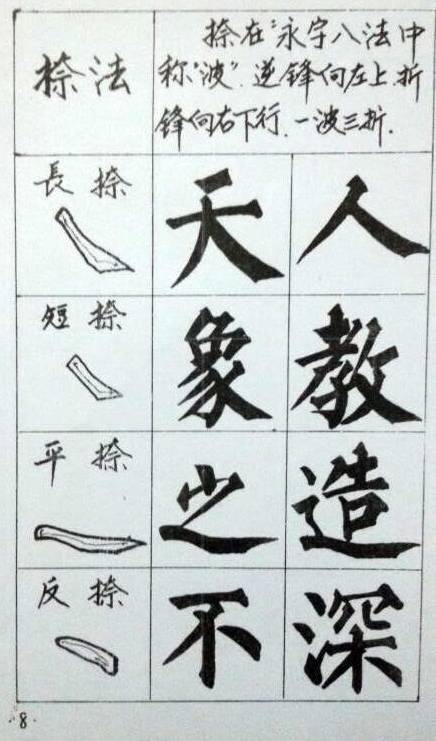 捺法
捺在“永字八法中
称“波”．逆锋向左上．折
锋向右下行．一波三折．
長捺
天
人
短捺
象
教
平捺
之
造
反捺
不
深
·8·